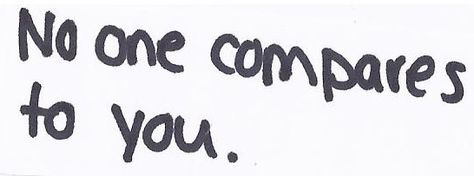 No one compares
to you.